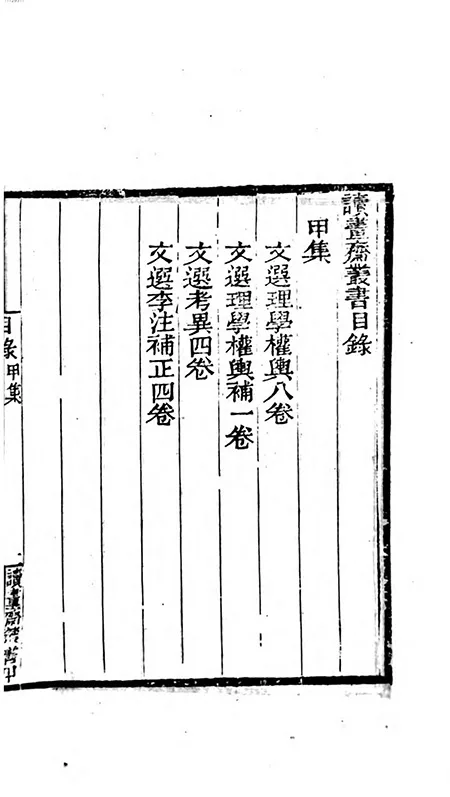 讀畫齋叢書目錄
甲集
文選理學權輿八卷
文選理學權輿補一卷
文選考異四卷
文選李注補正四卷
目錄甲集
一
讀畫齋叢書甲